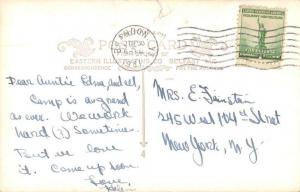 POST CARD
EASTERN ILLUSTRATING CO. BELFAST, ME.
CORRESPONDENCE
Dear Auntie Edna, and all,
Camp is as grand
as ever. We work
hard (?) Sometimes.
But we love
it. Come up soon.
Love,
Helen
4
Mrs. E. Feinstein
245 West 104th Street
New York, N.Y.